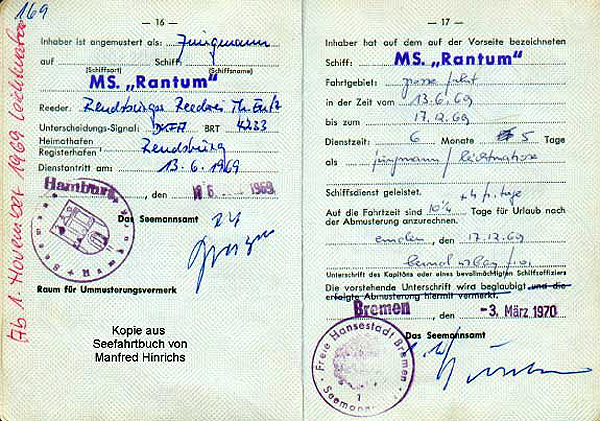 169
— 16 —
Inhaber ist angemustert als: Jungmann
auf Schiff:
(Schiffsart) (Schiffsname)
MS. „Rantum"
Reeder: Rendsburger Reederei Th.
Unterscheidungs-Signal: BRT 4233
Heimathafen
Registerhafen: Rendsburg
Dienstantritt am: 13.6.1969
Hamburg, den 1969
Das Seemannsamt
Raum für Ummusterungsvermerk
Ab 1. November 1969 Leichtmatrose
Kopie aus
Seefahrtbuch von
Manfred Hinrichs
— 17 —
Inhaber hat auf dem auf der Vorseite bezeichneten
Schiff: MS. „Rantum"
Fahrtgebiet: grosse fahrt
in der Zeit vom 13.6.69
bis zum 17.12.69
Dienstzeit: 6 Monate 5 Tage
als jungmann / leichtmatrose
Schiffsdienst geleistet.
Auf die Fahrtzeit sind Tage für Urlaub nach
der Abmusterung anzurechnen.
emden, den 17.12.69
Unterschrift des Kapitäns oder eines bevollmächtigten Schiffsoffiziers
Die vorstehende Unterschrift wird beglaubigt und die
erfolgte Abmusterung hiermit vermerkt.
Bremen -3. März 1970
Das Seemannsamt
Freie Hansestadt Bremen